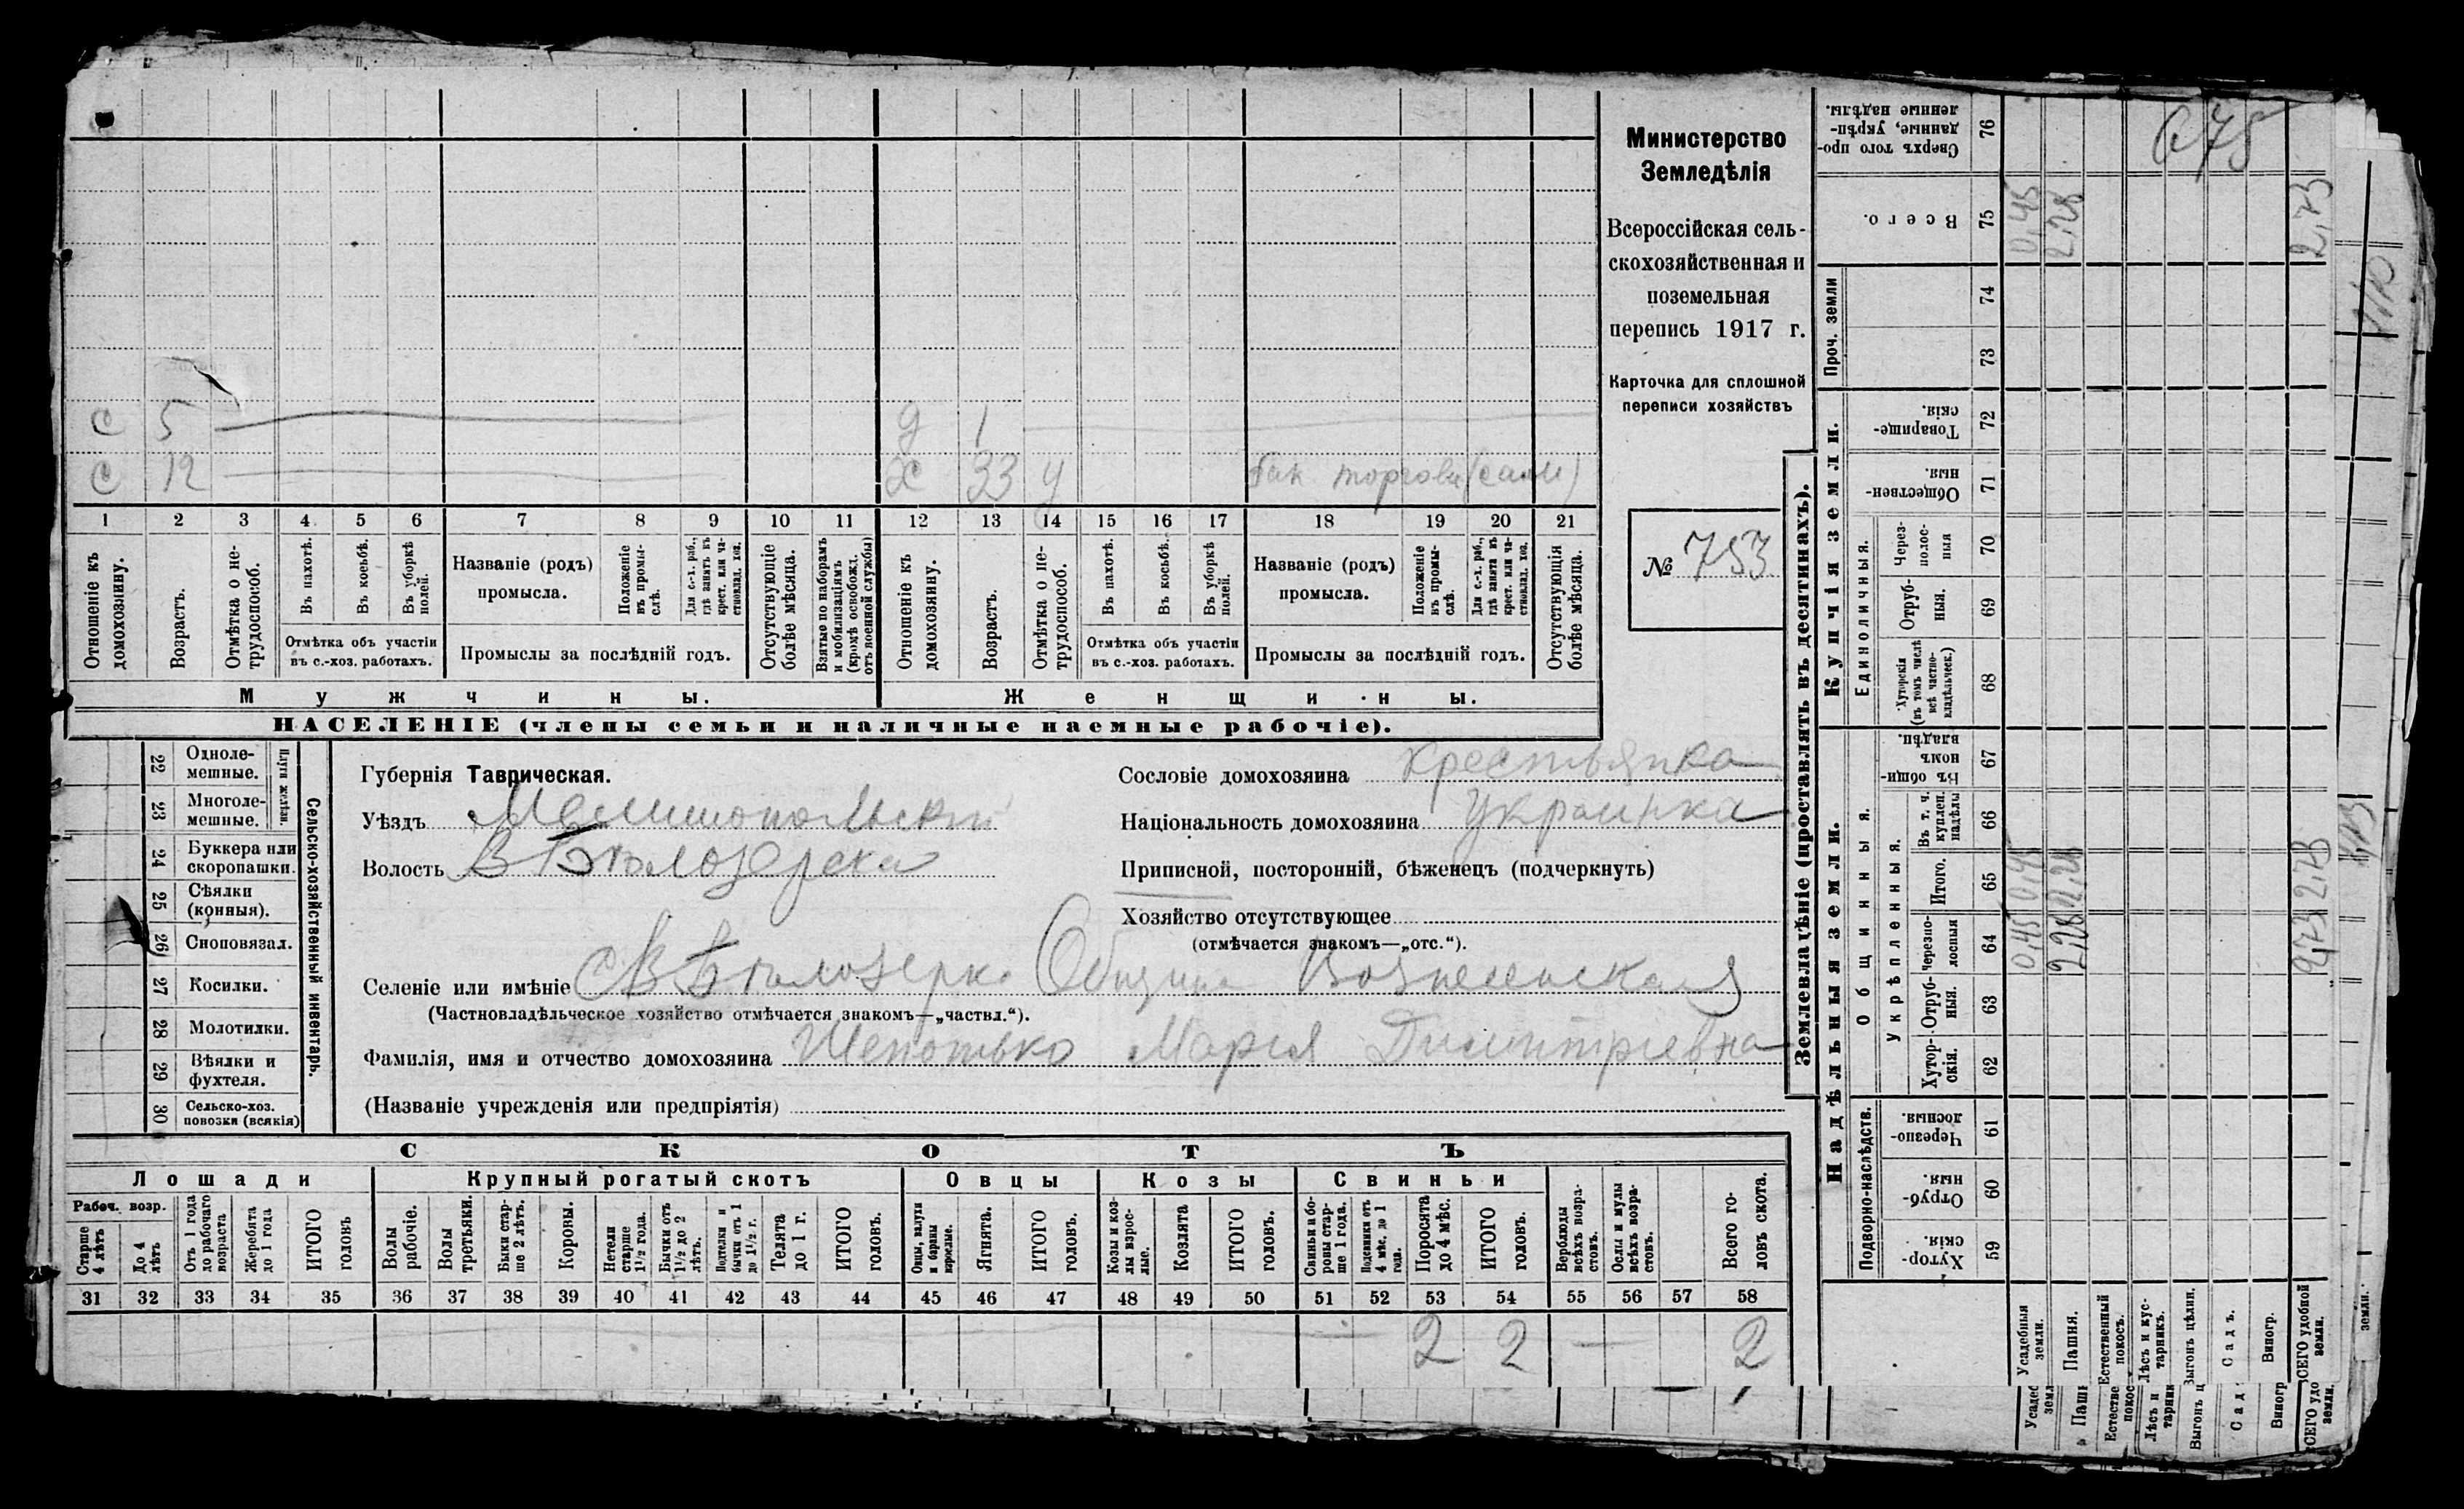 Министерство
Земледѣлія
Всероссійская сель-
скохозяйственная и
поземельная
перепись 1917 г.
Карточка для сплошной
переписи хозяйствъ
№ 753
с 5 д 1
с 12 х 33 у
1 2 3 4 5 6 7 8 9 10 11 12 13 14 15 16 17 18 19 20 21
Отношеніе къ домохозяину.
Возрастъ.
Отмѣтка о не-трудоспособ.
Въ пахотѣ.
Въ косьбѣ.
Въ уборкѣ полей.
Отмѣтка объ участіи въ с.-хоз. работахъ.
Названіе (родъ) промысла.
Положеніе въ промы-слѣ.
Для с.-х. раб., гдѣ занятъ въ крест. или ча-стновлад. хоз.
Промыслы за послѣдній годъ.
Отсутствующіе болѣе мѣсяца.
Взятые по наборамъ и мобилизаціямъ (кромѣ освобожд. отъ военной службы)
Отношеніе къ домохозяину.
Возрастъ.
Отмѣтка о не-трудоспособ.
Въ пахотѣ.
Въ косьбѣ.
Въ уборкѣ полей.
Отмѣтка объ участіи въ с.-хоз. работахъ.
Названіе (родъ) промысла.
Положеніе въ промы-слѣ.
Для с.-х. раб., гдѣ занята въ крест. или ча-стновлад. хоз.
Промыслы за послѣдній годъ.
Отсутствующія болѣе мѣсяца.
Мужчины. Женщины.
НАСЕЛЕНІЕ (члены семьи и наличные наемные рабочіе).
22 Одноле-мешные.
23 Многоле-мешные.
Плуги желѣзн.
24 Буккера или скоропашки.
25 Сѣялки (конныя).
26 Сноповязал.
27 Косилки.
28 Молотилки.
29 Вѣялки и фухтеля.
30 Сельско-хоз. повозки (всякія)
Сельско-хозяйственный инвентарь.
Губернія Таврическая.
Уѣздъ Мелитопольскій
Волость В Бѣлозерска
Сословіе домохозяина крестьянка
Національность домохозяина Украинка
Приписной, посторонній, бѣженец (подчеркнуть)
Хозяйство отсутствующее
(отмѣчается знакомъ—„отс.“).
Селеніе или имѣніе с В Бѣлозерка Община Вознесенская
(Частновладѣльческое хозяйство отмѣчается знакомъ—„частвл.“).
Фамилія, имя и отчество домохозяина Шепотько Мария Димитріевна
(Названіе учрежденія или предпріятія)
СКОТЪ
Лошади Крупный рогатый скотъ Овцы Козы Свиньи
Рабоч. возр.
Старше 4 лѣтъ
До 4 лѣтъ
Отъ 1 года до рабочаго возраста
Жеребята до 1 года
ИТОГО головъ
Волы рабочіе.
Волы третьяки.
Быки стар-ше 2 лѣтъ.
Коровы.
Нетели старше 1½ года.
Бычки отъ 1½ до 2 лѣтъ.
Подтелки и бычки отъ 1 до 1½ г.
Телята до 1 г.
ИТОГО головъ.
Овцы, валухи и бараны взрослые.
Ягнята.
ИТОГО головъ.
Козы и коз-лы взрос-лые.
Козлята
ИТОГО головъ.
Свиньи и бо-ровы стар-ше 1 года.
Подсвинки отъ 4 мѣс. до 1 года.
Поросята до 4 мѣс.
ИТОГО головъ.
Верблюды всѣхъ возра-стовъ.
Ослы и мулы всѣхъ возра-стовъ.
Всего го-ловъ скота.
31 32 33 34 35 36 37 38 39 40 41 42 43 44 45 46 47 48 49 50 51 52 53 54 55 56 57 58
2 2 — 2
Землевладѣніе (проставлять въ десятинахъ).
Надѣльныя земли. Купчія земли. Проч. земли
Подворно-наслѣдств.
Общинныя.
Укрѣпленныя.
Единоличныя.
Хутор-скія. 59
Отруб-ныя. 60
Черезпо-лосныя. 61
Хутор-скія. 62
Отруб-ныя. 63
Черезпо-лосныя 64
Итого. 65
Въ т. ч. куплен. надѣлы 66
Въ общи-номъ владѣн. 67
Хуторскія (въ томъ числѣ всѣ частно-владѣльческ.) 68
Отруб-ныя. 69
Через-полос-ныя 70
Обществен-ныя. 71
Товарище-скія. 72
73
74
Всего. 75
Сверхъ того про-данные, укрѣп-ленные надѣлы. 76
Усадебныя земли. 0,45 0,45 0,45
Пашня. 2,28 2,28 2,28
Естественный покосъ.
Лѣсъ и кус-тарникъ.
Выгонъ цѣлин.
Садъ.
Виногр.
ВСЕГО удобной земли. 2,73 2,73 2,73
земли.
678